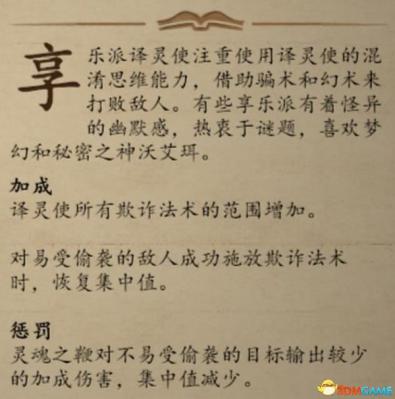 享乐派译灵使注重使用译灵使的混
淆思维能力，借助骗术和幻术来
打败敌人。有些享乐派有着怪异
的幽默感，热衷于谜题，喜欢梦
幻和秘密之神沃艾珥。
加成
译灵使所有欺诈法术的范围增加。
对易受偷袭的敌人成功施放欺诈法术
时，恢复集中值。
惩罚
灵魂之鞭对不易受偷袭的目标输出较少
的加成伤害，集中值减少。
3DMGAME